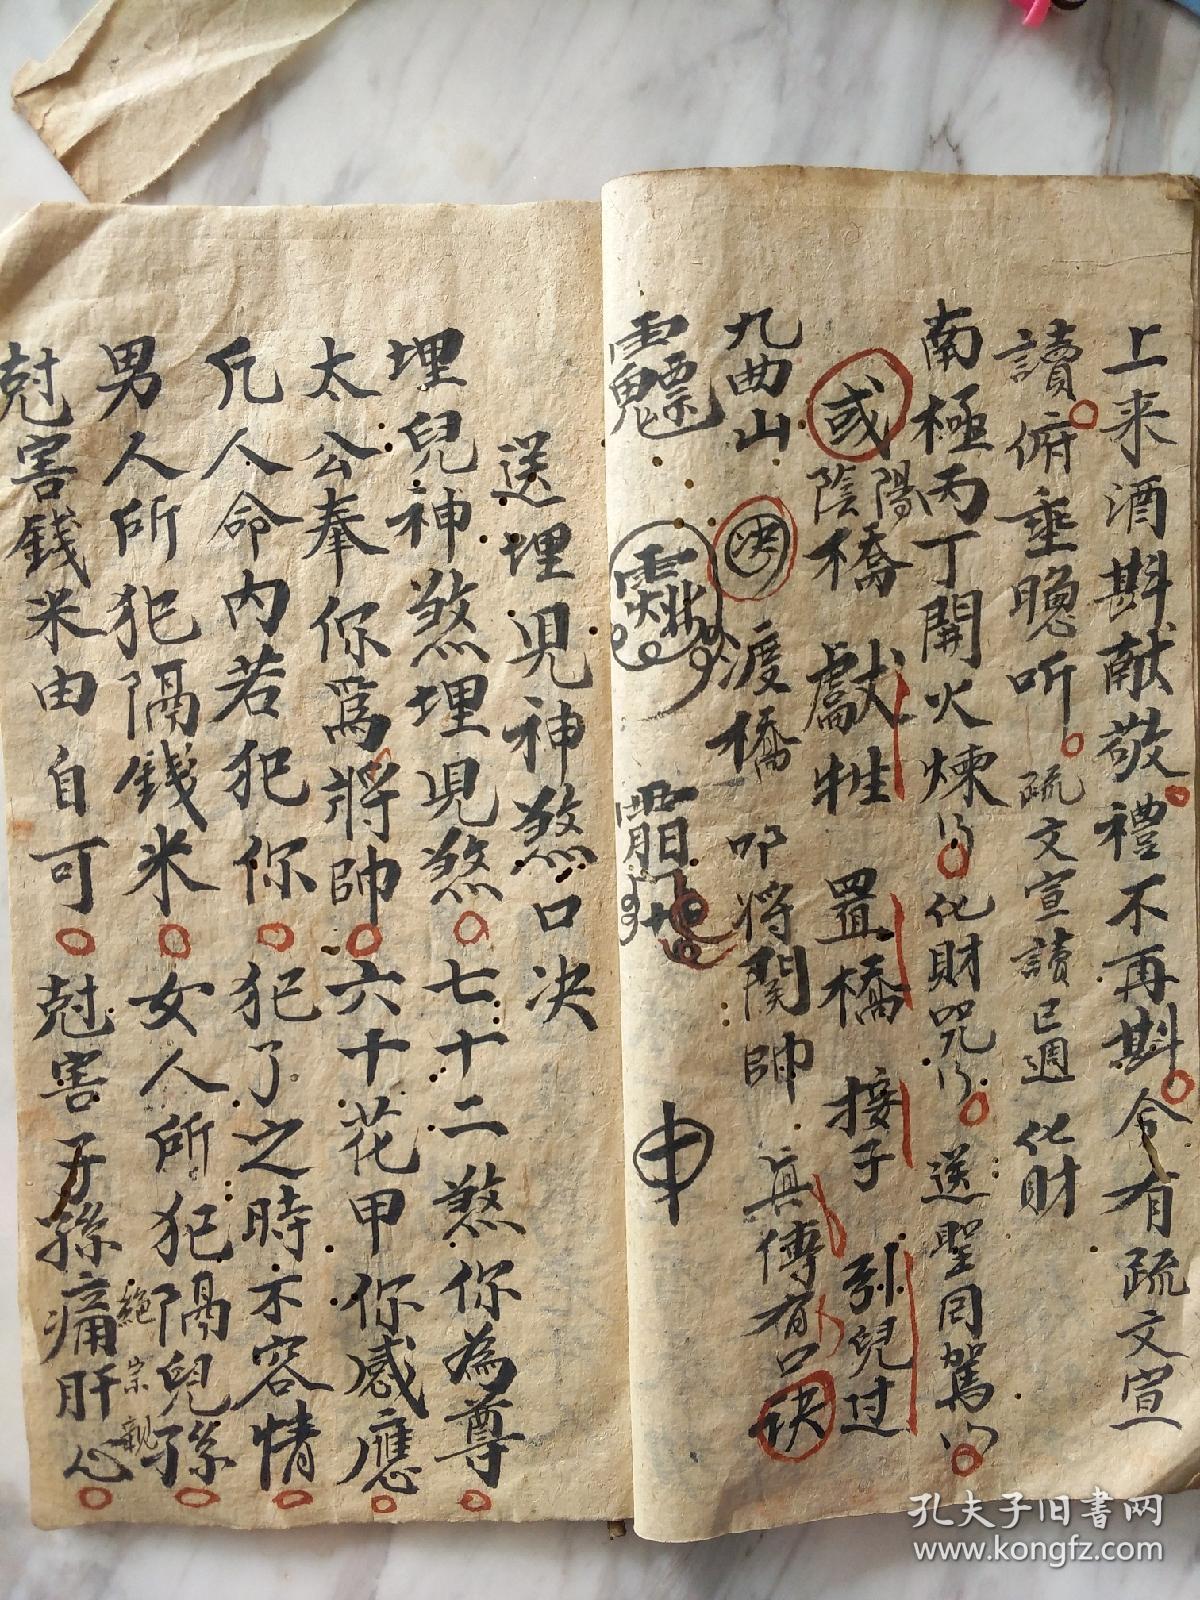 上来酒斟献敬禮不再斟今有疏文宣
讀俯垂聰听 疏文宣讀已週 化財
南極丙丁開火煉 化財咒 送聖回駕
或陰陽橋 獻牲 置橋 接子 引兒过
九曲山 渡橋 叩將関帥 真傳有口诀
送埋児神煞口决
埋兒神煞埋児煞 七十二煞你為尊
太公奉你爲將帥 六十花甲你感應
凡人命内若犯你 犯了之時不容情
男人所犯隔錢米 女人所犯隔兒孫
絶宗親
尅害錢米由自可 尅害子孫痛肝心
孔夫子旧书网
www.kongfz.com